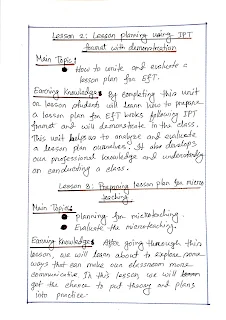 Lesson 2: Lesson planning using IPT
format with demonstration
Main Topic:
• How to write and evaluate a
lesson plan for EFT.
Earning Knowledge: By completing this unit
on lesson students will learn how to prepare
a lesson plan for EFT works following IPT
format and will demonstrate in the class.
This will help us to analyze and evaluate
a lesson plan ourselves. It also develops
our professional knowledge and understanding
on conducting a class.
Lesson 3: Preparing lesson plan for micro
teaching
Main Topics:
• planning for microteaching.
• Evaluate the microteaching.
Earning Knowledge: After going through this
lesson, we will learn about to explore some
ways that can make our classroom more
communicative. In this lesson we will
got the chance to put theory and plans
into practice.